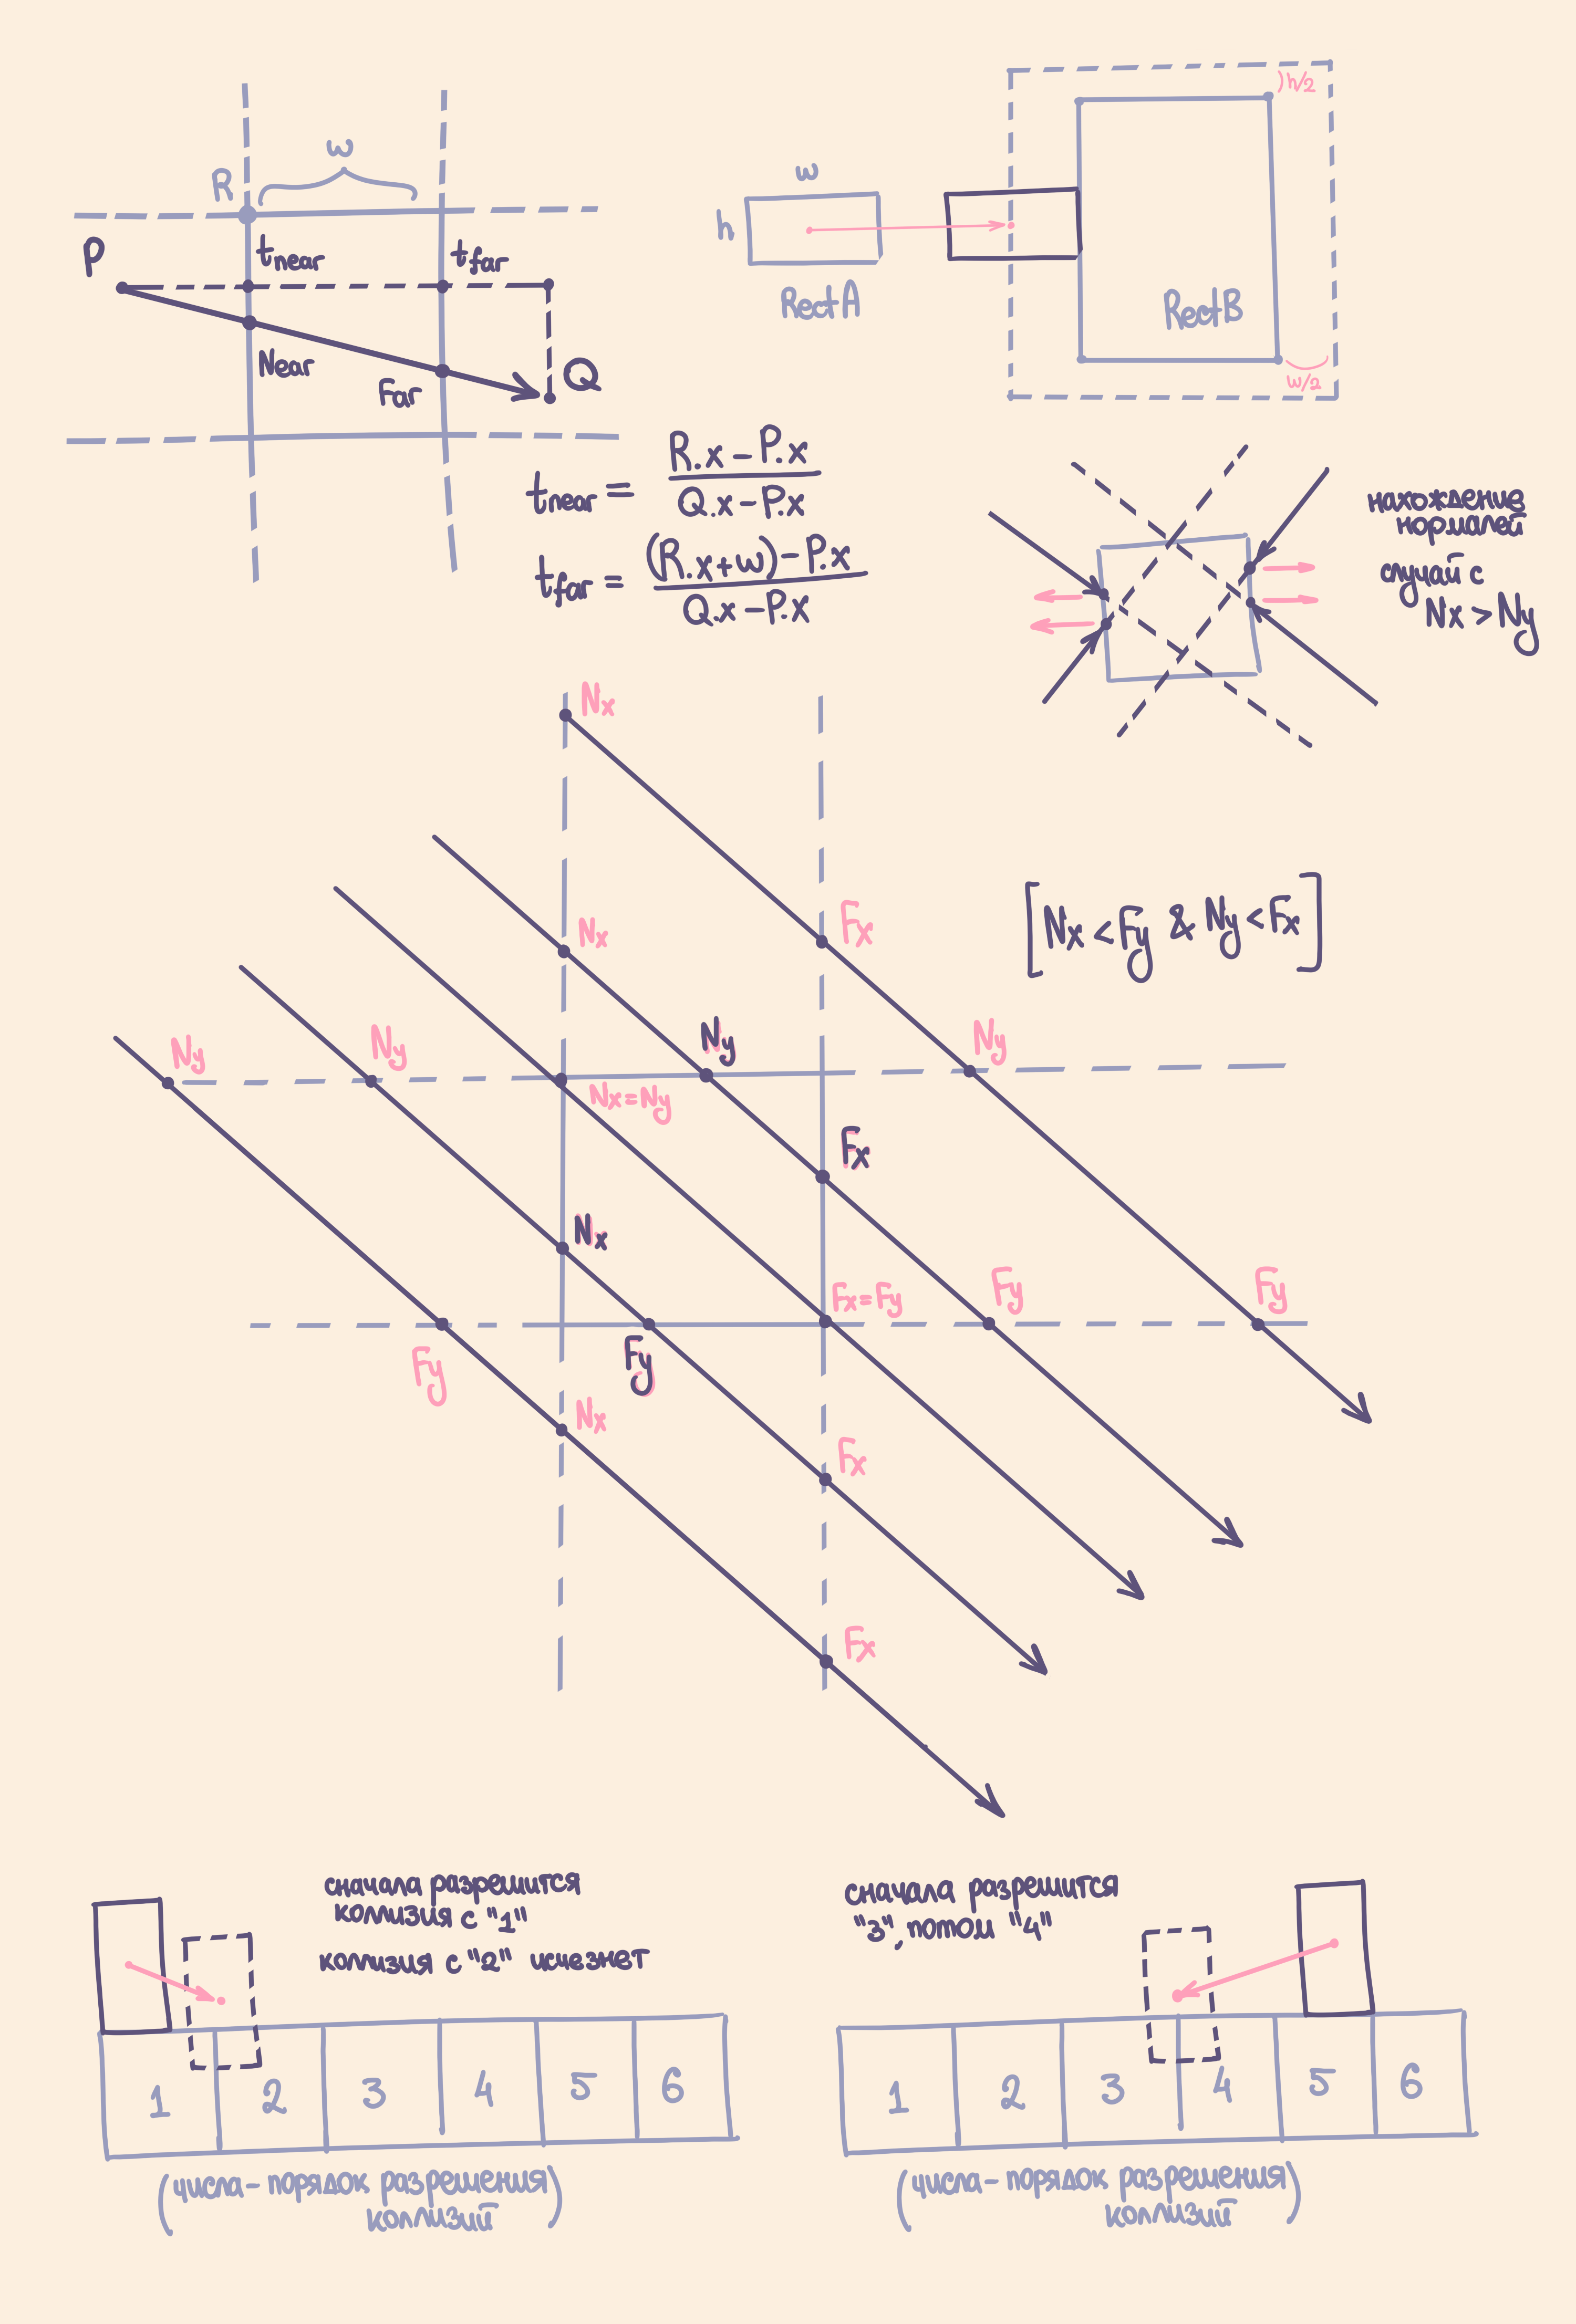 R
w
P
t near
t far
Near
Far
Q
t near = (R.x - P.x) / (Q.x - P.x)
t far = ((R.x + w) - P.x) / (Q.x - P.x)
w
h
RectA
RectB
h/2
w/2
нахождение
нормалей
случай с
Nx > Ny
Nx
Nx
Fx
[Nx < Fy & Ny < Fx]
Ny
Ny
Nx = Ny
Ny
Ny
Fx
Nx
Fx = Fy
Fy
Fy
Fy
Fy
Nx
Fx
Fx
сначала разрешится
колизия с "1"
коллизия с "2" исчезнет
1 2 3 4 5 6
(числа - порядок разрешения
коллизий)
сначала разрешится
"3", потом "4"
1 2 3 4 5 6
(числа - порядок разрешения
коллизий)